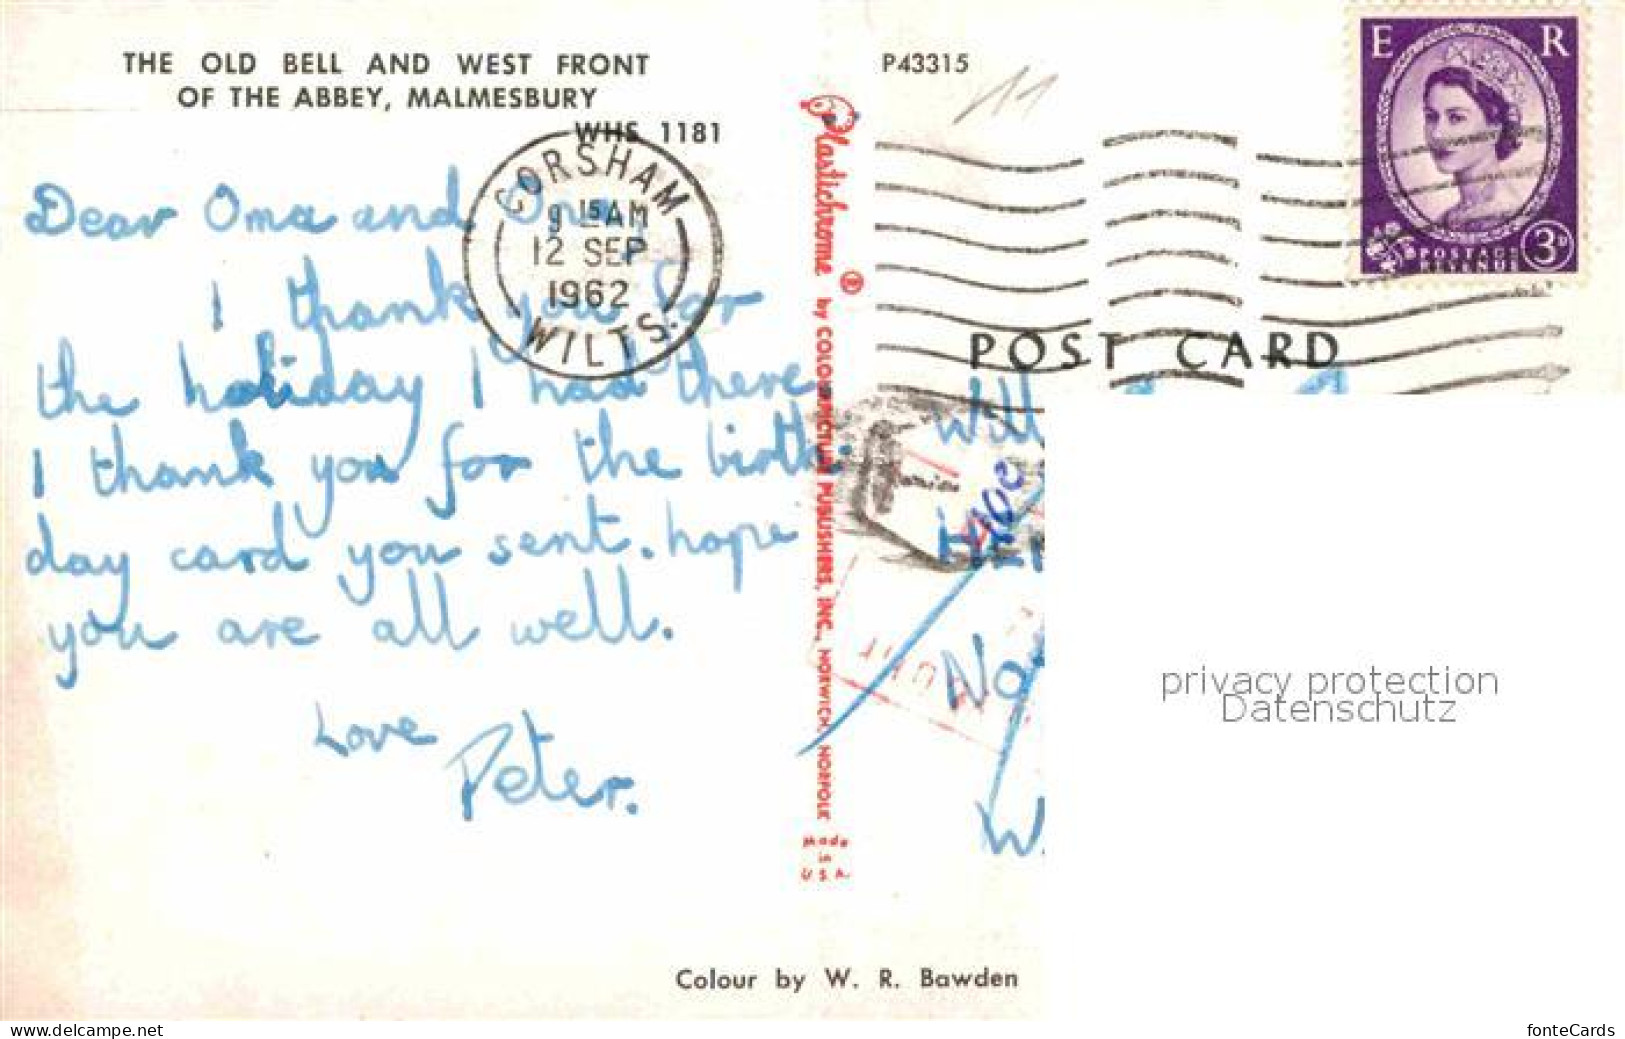 THE OLD BELL AND WEST FRONT
OF THE ABBEY, MALMESBURY
WHS 1181
CORSHAM
9 15 AM
12 SEP
1962
WILTS.
Dear Oma and Opa,
I thank you for
the holiday I had there
I thank you for the birth-
day card you sent. hope
you are all well.
Love
Peter.
Plastichrome ® by COLOURPICTURE PUBLISHERS, INC., NORWICH, NORFOLK
Made
in
U.S.A.
P43315
11
E R
POSTAGE
REVENUE
3D
POST CARD
Will
privacy protection
Datenschutz
Colour by W. R. Bawden
www.delcampe.net
fonteCards